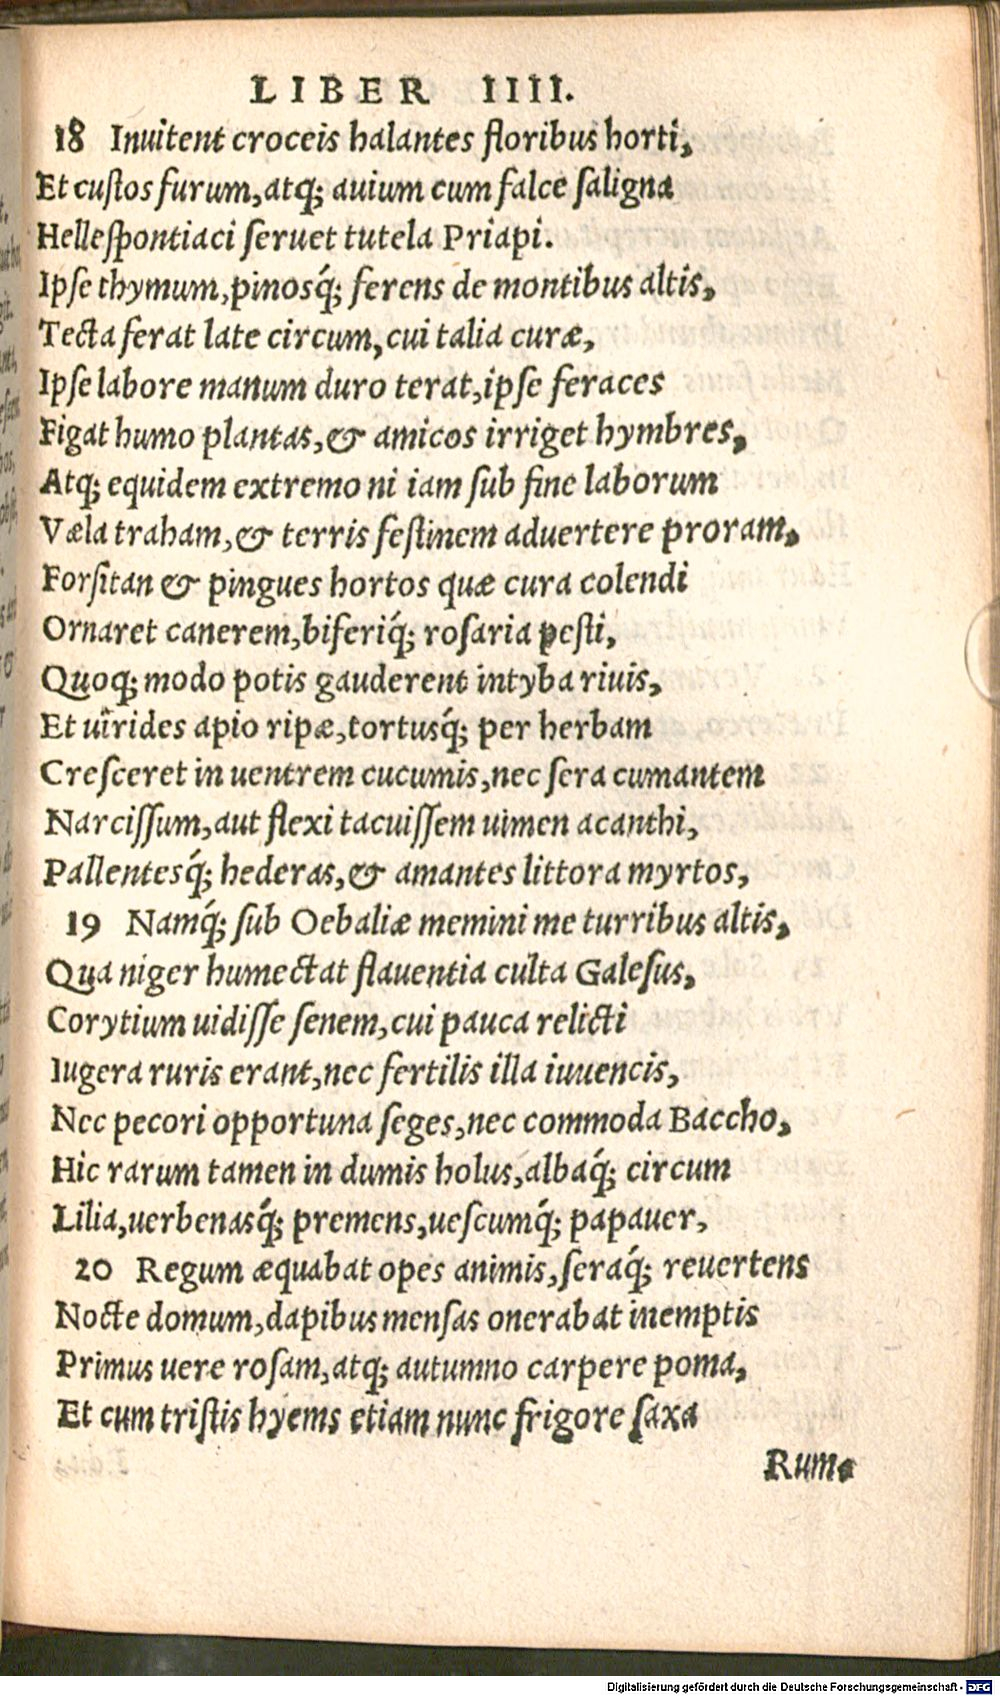 LIBER IIII.
18 Inuitent croceis halantes floribus horti,
Et cuſtos furum,atq; auium cum falce ſaligna
Helleſpontiaci ſeruet tutela Priapi.
Ipſe thymum,pinosq́; ferens de montibus altis,
Tecta ferat late circum,cui talia curæ,
Ipſe labore manum duro terat,ipſe feraces
Figat humo plantas,& amicos irriget hymbres,
Atq; equidem extremo ni iam ſub fine laborum
Væla traham,& terris feſtinem aduertere proram,
Forſitan & pingues hortos quæ cura colendi
Ornaret canerem,biferiq́; roſaria pesti,
Quoq; modo potis gauderent intyba riuis,
Et uirides apio ripæ,tortusq́; per herbam
Creſceret in uentrem cucumis,nec ſera cumantem
Narciſſum,aut flexi tacuiſſem uimen acanthi,
Pallentesq́; hederas,& amantes littora myrtos,
19 Namq́; ſub Oebaliæ memini me turribus altis,
Qua niger humectat flauentia culta Galeſus,
Corytium uidiſſe ſenem,cui pauca relicti
Iugera ruris erant,nec fertilis illa iuuencis,
Nec pecori opportuna ſeges,nec commoda Baccho,
Hic rarum tamen in dumis holus,albaq́; circum
Lilia,uerbenasq́; premens,ueſcumq́; papauer,
20 Regum æquabat opes animis,ſeraq́; reuertens
Nocte domum,dapibus menſas onerabat inemptis
Primus uere roſam,atq; autumno carpere poma,
Et cum triſtis hyems etiam nunc frigore ſaxa
Rum-
Digitalisierung gefördert durch die Deutsche Forschungsgemeinschaft - DFG